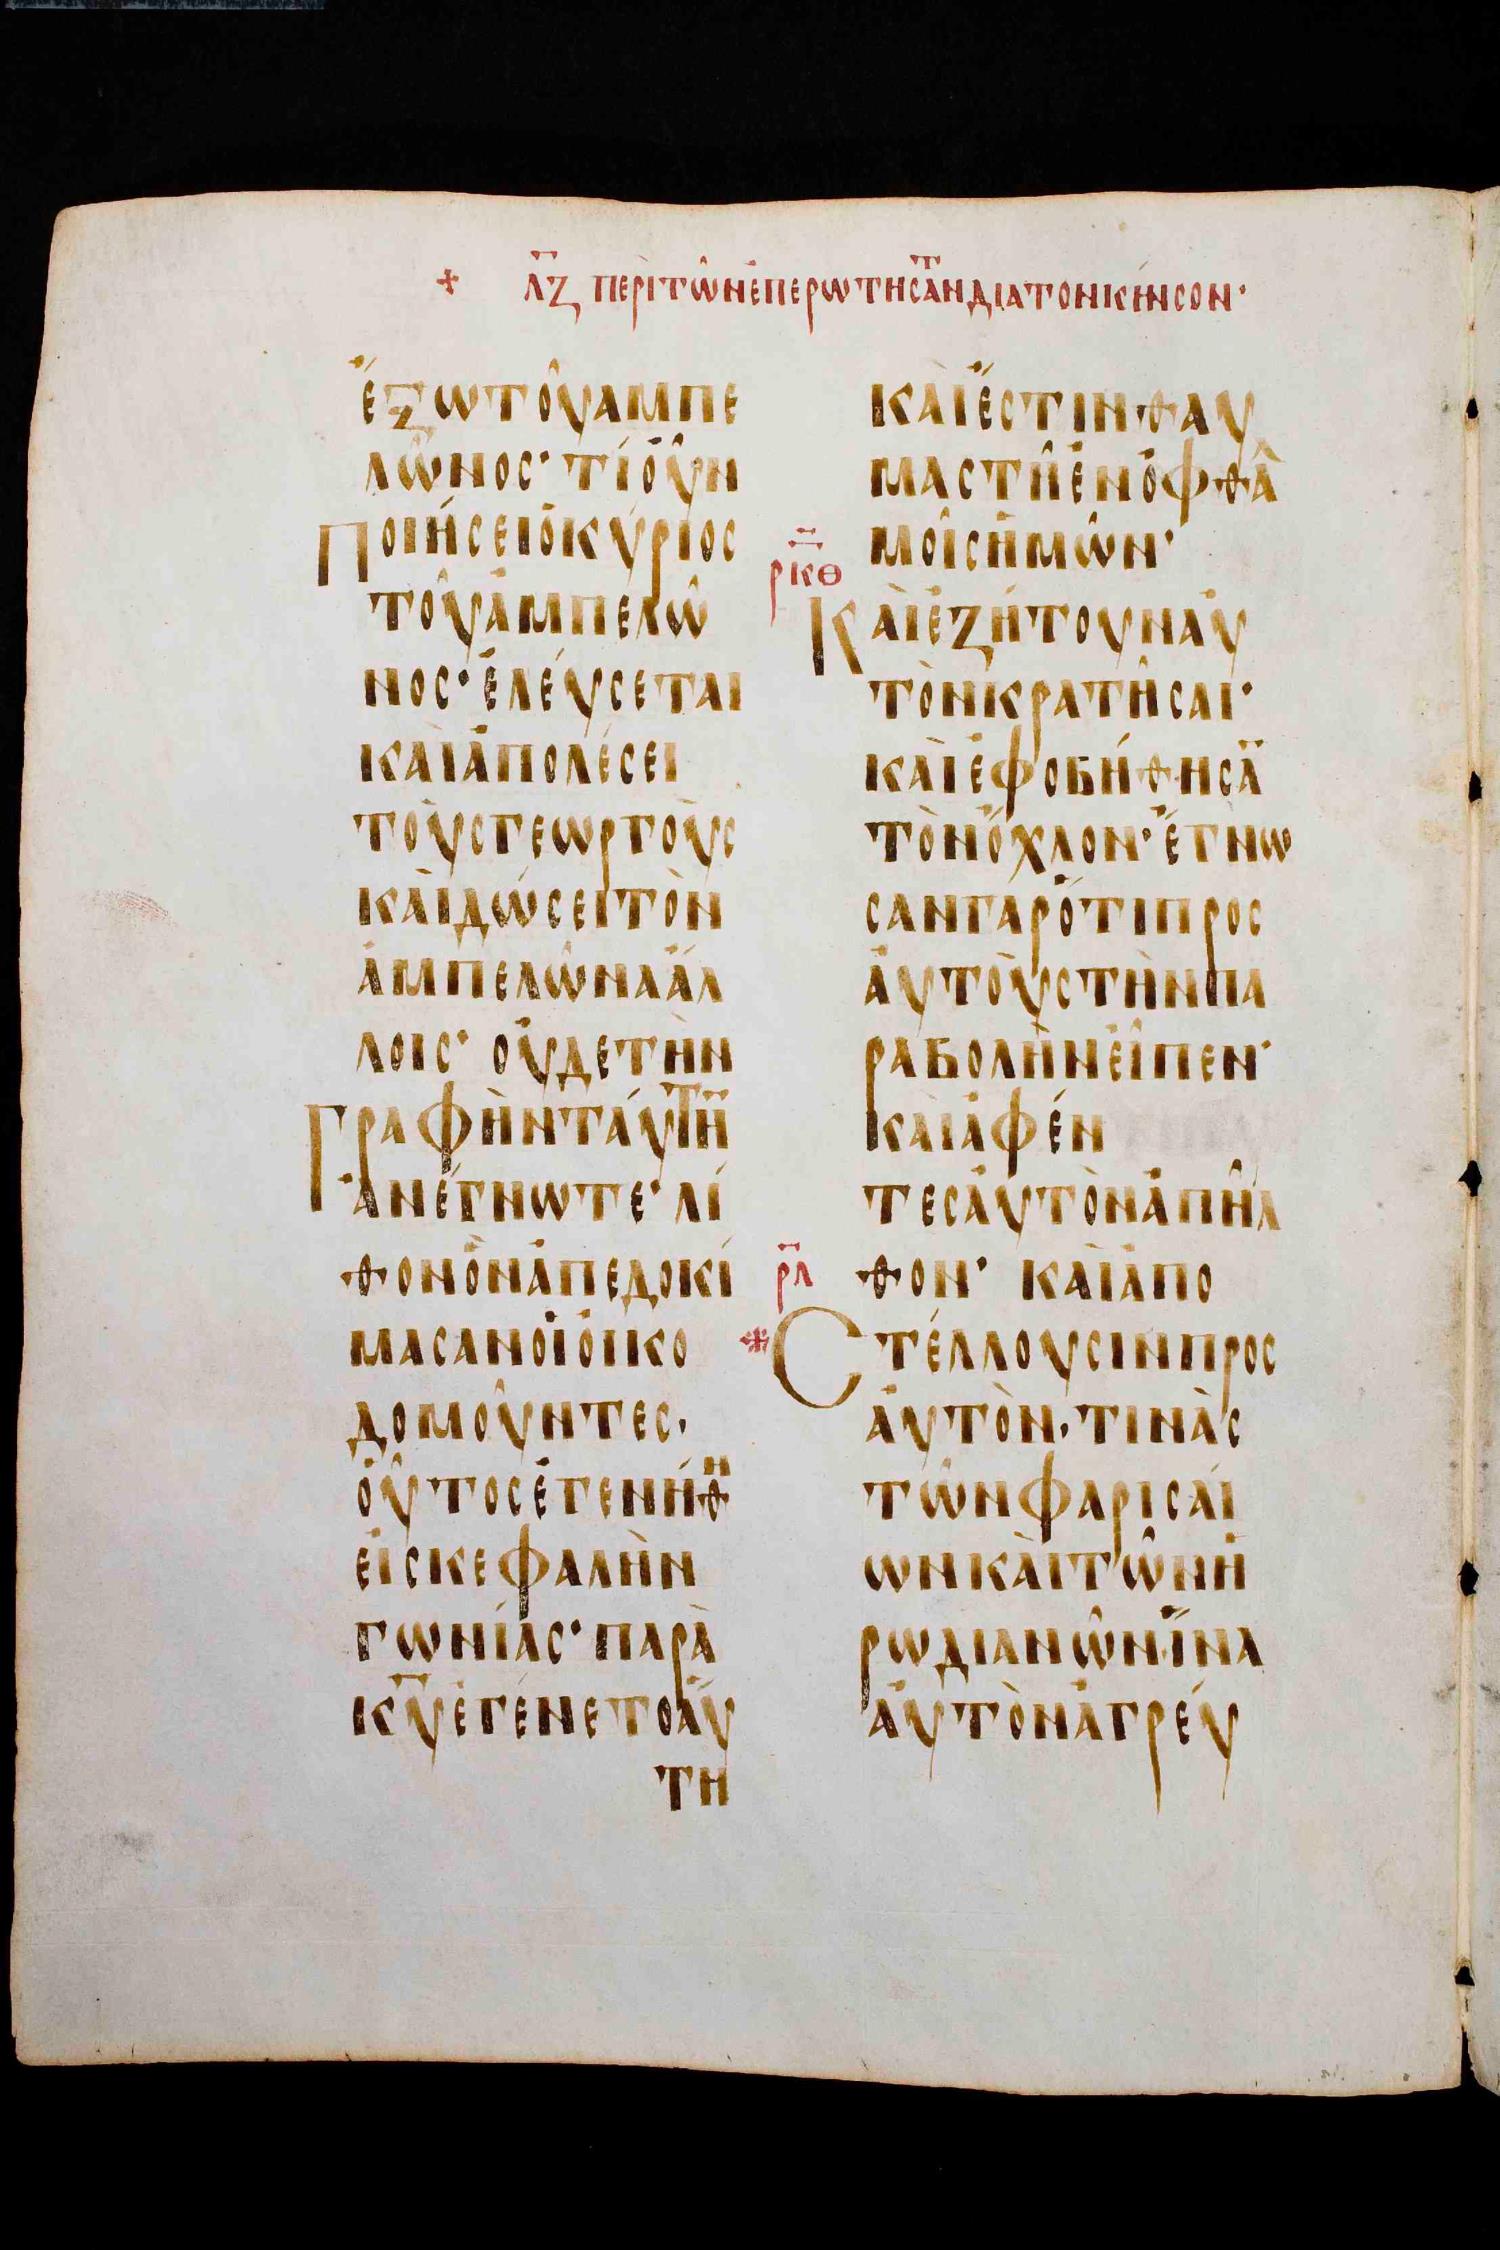 + λζ περὶ τῶν ἐπερωτησάντ διὰ τὸν κῆνσον·
ἔξω τοῦ ἀμπε
λῶνος· τί οὖν
ποιήσει ὁ κύριος
τοῦ ἀμπελῶ
νος· ἐλεύσεται
καὶ ἀπολέσει
τοὺς γεωργοὺς
καὶ δώσει τὸν
ἀμπελῶνα ἄλ
λοις· οὐδε τὴν
γραφὴν ταύτην
ἀνέγνωτε· λί
θον ὃν ἀπεδοκί
μασαν οἱ οἰκο
δομοῦντες,
οὗτος ἐγενήθη
εἰς κεφαλὴν
γωνίας· παρὰ
κ̅υ̅ ἐγένετο αὕ
τη
καὶ ἔστιν θαυ
μαστὴ ἐν ὀφθαλ
μοῖς ἡμῶν·
ρκθ
Καὶ ἐζήτουν αὐ
τὸν κρατῆσαι·
καὶ ἐφοβήθησα̅
τὸν ὄχλον· ἔγνω
σαν γὰρ ὅτι προς
αὐτοὺς τὴν πα
ραβολὴν εἶπεν·
καὶ ἀφέν
τες αὐτὸν ἀπῆλ
θον· καὶ ἀπο
ρλ
στέλλουσιν προς
αὐτὸν, τινὰς
τῶν φαρισαί
ων καὶ τῶν ἡ
ρωδιανῶν ἵνα
αὐτὸν ἀγρεύ